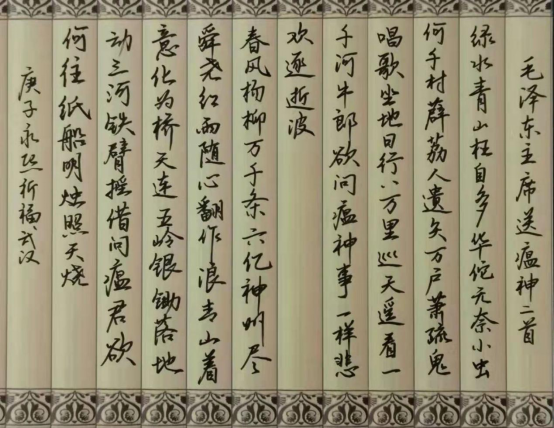 毛泽东主席送瘟神二首
绿水青山枉自多华佗无奈小虫
何千村薜荔人遗矢万户萧疏鬼
唱歌坐地日行八万里巡天遥看一
千河牛郎欲问瘟神事一样悲
欢逐逝波
春风杨柳万千条六亿神州尽
舜尧红雨随心翻作浪青山着
意化为桥天连五岭银锄落地
动三河铁臂摇借问瘟君欲
何往纸船明烛照天烧
庚子永熙祈福武汉